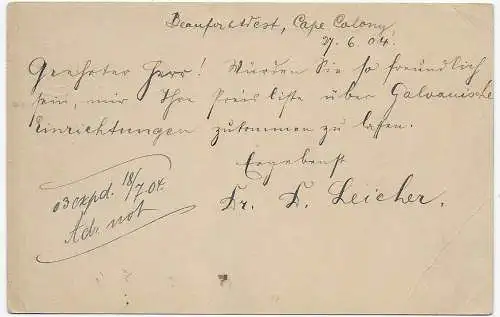 Beaufort West, Cape Colony
27. 6 04.
Geehrter Herr! Würden Sie so freundlich
sein, mir Ihre Preisliste über Galvanische
Einrichtungen zukommen zu lassen.
Ergebenst
Dr. D. Leicher.
03 expd. 18/7 04.
Adr. not